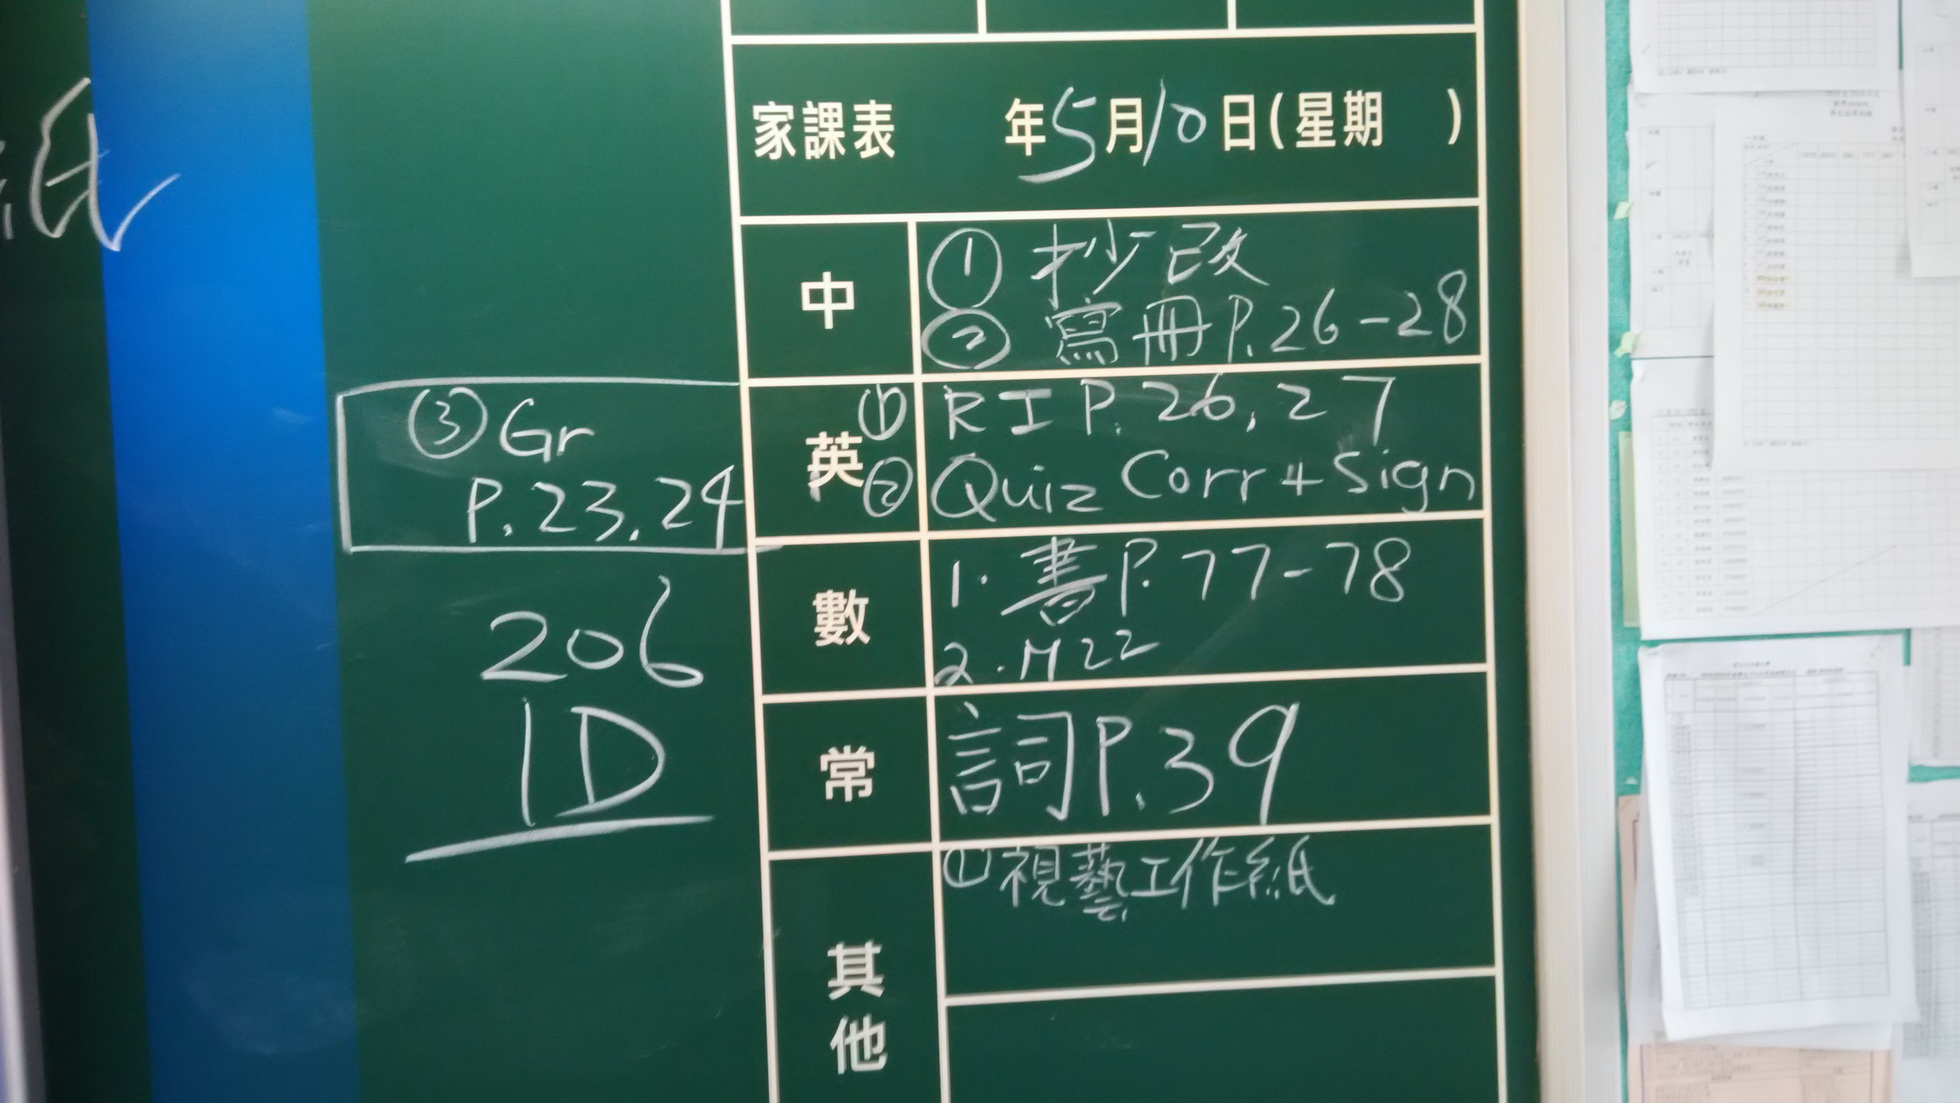 紙
家課表 年5月10日(星期 )
中 ① 抄改
② 寫冊P.26-28
英 ① RI P.26,27
② Quiz Corr + Sign
③ Gr
P.23,24
數 1. 書P.77-78
2. M22
常 詞P.39
其他 ① 視藝工作紙
206
1D